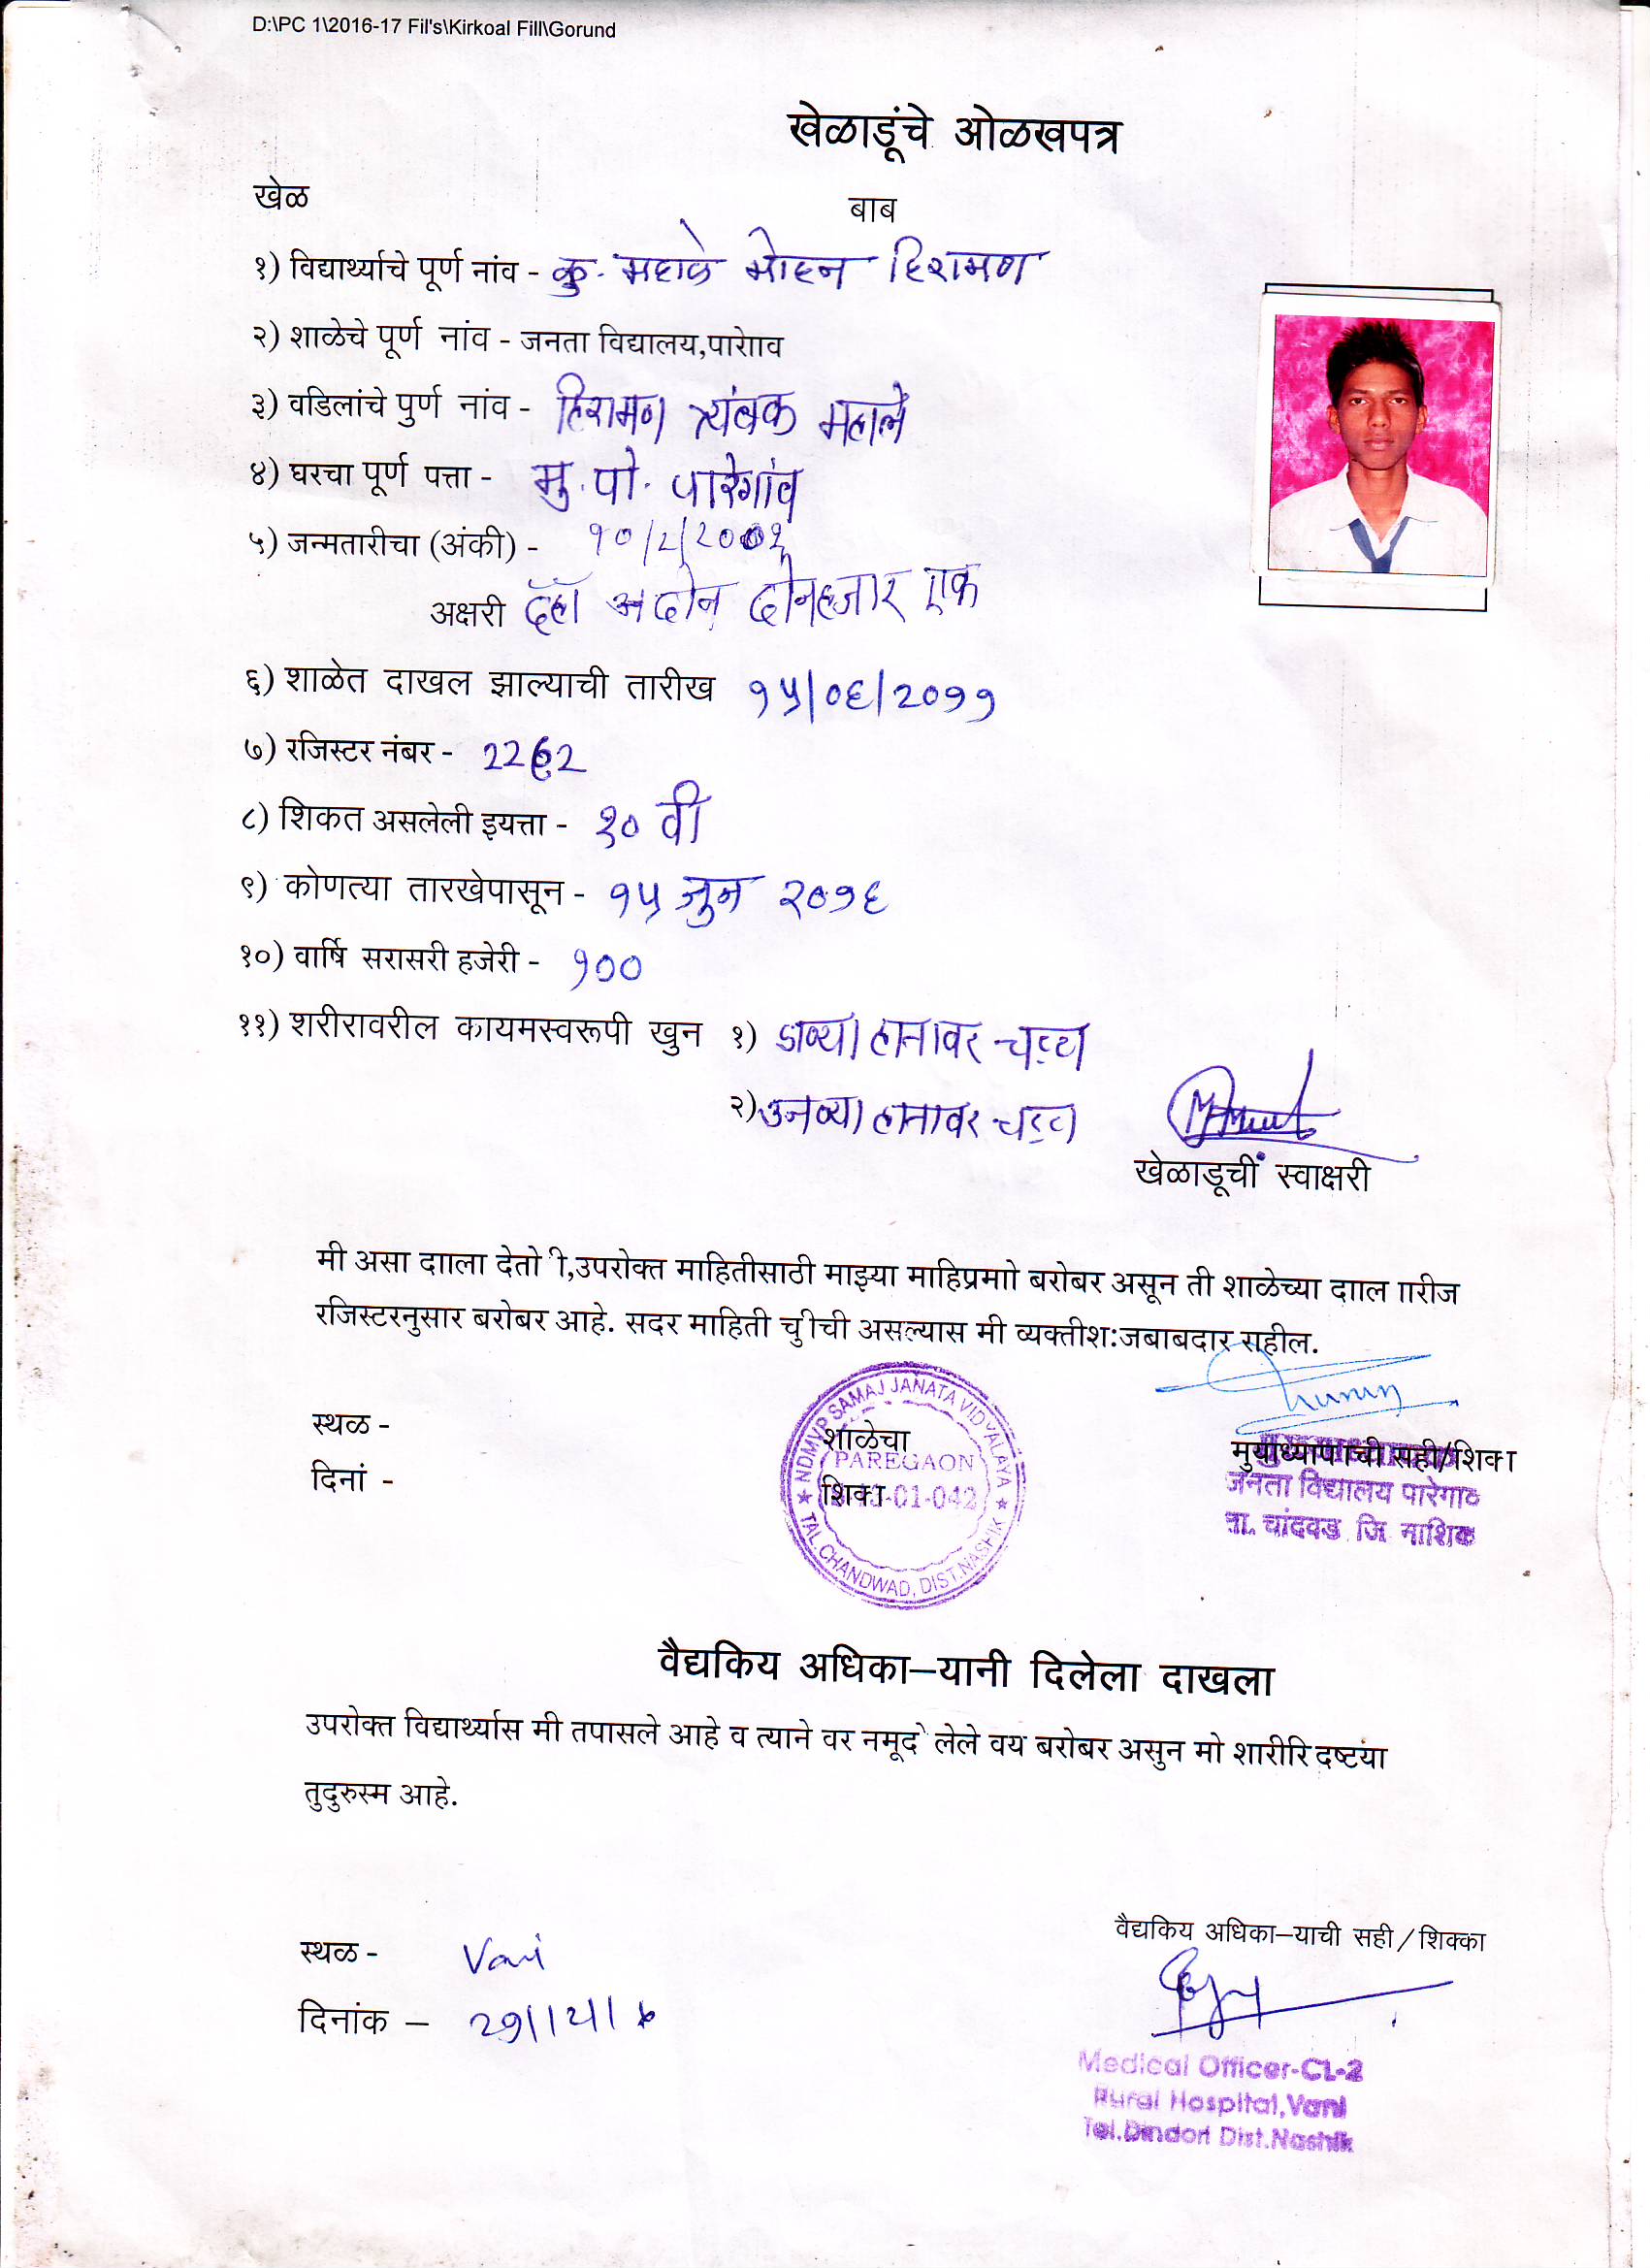 D:\PC 1\2016-17 Fil's\Kirkoal Fill\Gorund
खेळाडूंचे ओळखपत्र
खेळ बाब
१) विद्यार्थ्याचे पूर्ण नांव - कु. महाले मोहन हिरामण
२) शाळेचे पूर्ण नांव - जनता विद्यालय,पारेााव
३) वडिलांचे पुर्ण नांव - हिरामण त्र्यंबक महाले
४) घरचा पूर्ण पत्ता - मु. पो. पारेगांव
५) जन्मतारीचा (अंकी) - १०/२/२००१
अक्षरी दोनहजार एक
६) शाळेत दाखल झाल्याची तारीख १५/०६/२०११
७) रजिस्टर नंबर -
८) शिकत असलेली इयत्ता - १० वी
९) कोणत्या तारखेपासून - १५ जुन २०१६
१०) वार्षि सरासरी हजेरी - १००
११) शरीरावरील कायमस्वरूपी खुन १) डाव्या हातावर
२) उजव्या हातावर
खेळाडूचीं स्वाक्षरी
मी असा दााला देतो ी,उपरोक्त माहितीसाठी माझ्या माहिप्रमााे बरोबर असून ती शाळेच्या दााल ाारीज
रजिस्टरनुसार बरोबर आहे. सदर माहिती चुीची असल्यास मी व्यक्तीश:जबाबदार सहील.
स्थळ -
दिनां -
NDMVP SAMAJ JANATA VIDYALAYA
शाळेचा
PAREGAON
शिक्का
-01-042
TAL.CHANDWAD, DIST.NASHIK
मुयाध्यापाची सही/शिक्का
जनता विद्यालय पारेगाव
ता. चांदवड जि नाशिक
वैद्यकिय अधिका–यानी दिलेला दाखला
उपरोक्त विद्यार्थ्यास मी तपासले आहे व त्याने वर नमूद े लेले वय बरोबर असुन मो शारीरि दष्टया
तुदुरुस्म आहे.
वैद्यकिय अधिका–याची सही / शिक्का
स्थळ - Vani
दिनांक –
Medical Officer-CL-2
Rural Hospital,Vani
Tal.Dindori Dist.Nashik